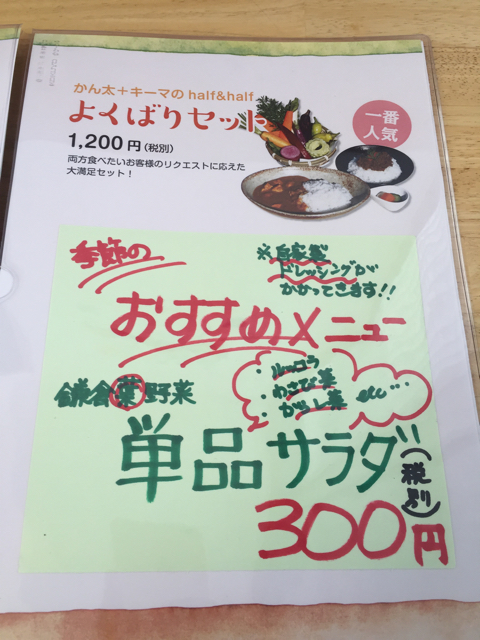 かん太+キーマのhalf&half
よくばりセット
1,200円(税別)
両方食べたいお客様のリクエストに応えた
大満足セット!
一番
人気
季節の
※自家製
ドレッシングが
かかってきます!!
おすすめメニュー
鎌倉葉野菜
・ルッコラ
・わさび菜
・からし菜 etc…
単品サラダ
(税別)
300円